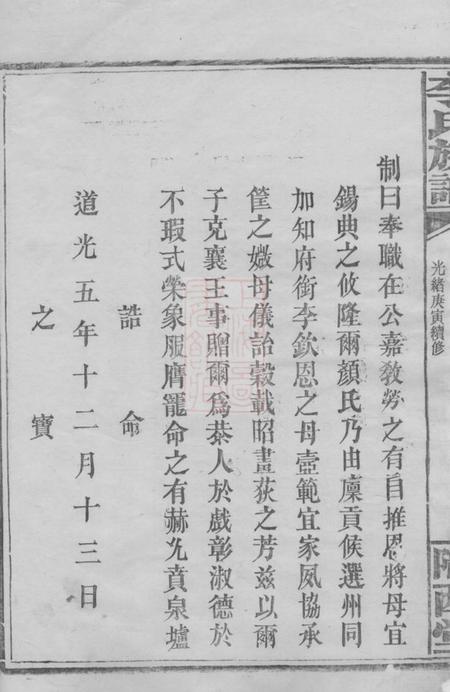 李氏族譜
光緒庚寅續修
隴西堂
制曰奉職在公嘉敎勞之有自推恩將母宜
錫典之攸隆爾顏氏乃由廩貢候選州同
加知府銜李欽恩之母壼範宜家夙協承
筐之媺母儀詒穀載昭畫荻之芳兹以爾
子克襄王事贈爾爲恭人於戲彰淑德於
不瑕式榮象服膺寵命之有赫允賁泉壚
誥命
道光五年十二月十三日
之寶